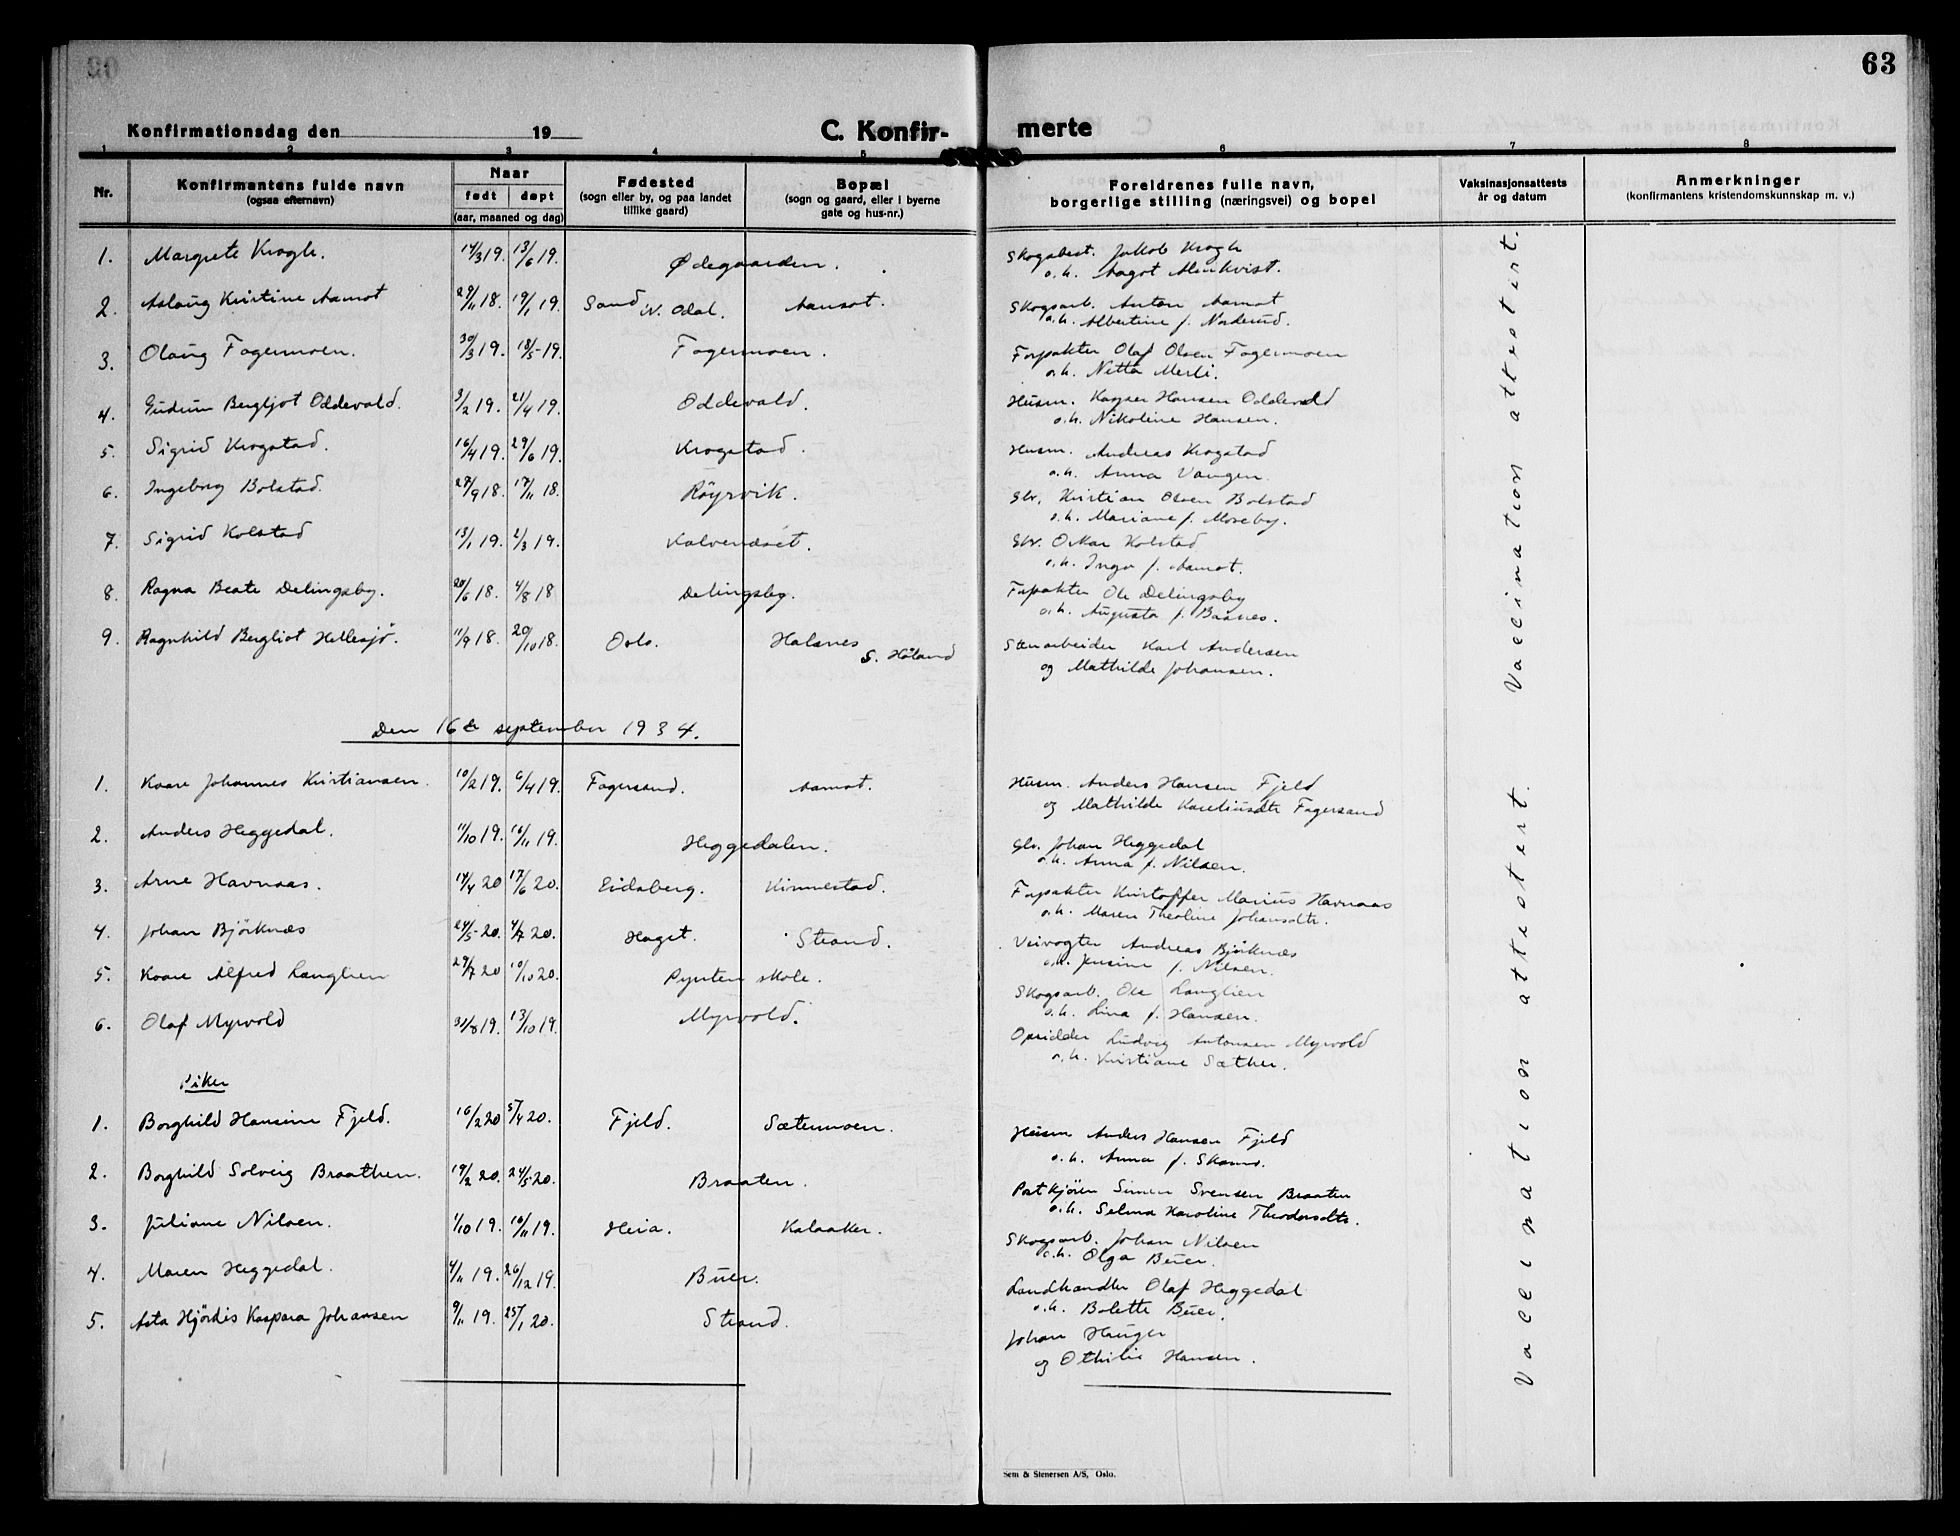 63
Konfirmationsdag den 19
C. Konfir- merte
1 2 3 4 5 6 7 8
Nr.
Konfirmantens fulde navn
(ogsaa efternavn)
Naar
født døpt
(aar, maaned og dag)
Fødested
(sogn eller by, og paa landet
tillike gaard)
Bopæl
(sogn og gaard, eller i byerne
gate og hus-nr.)
Foreldrenes fulle navn,
borgerlige stilling (næringsvei) og bopel
Vaksinasjonsattests
år og datum
Anmerkninger
(konfirmantens kristendomskunnskap m. v.)
1. Margrete Krogh. 14/3 19. 13/6 19. Ødegaarden. Skogsbest. Jakob Krogh
o.h. Aagot Almkvist.
2. Aslaug Kristine Aamot 29/11 18. 19/1 19. Sand N. Odal. Aamot. Skogsarb. Anton Aamot
o.h. Albertine f. Norderud.
3. Olaug Fagermoen. 30/3 19. 18/5 19. Fagermoen. Forpakter Olaf Olsen Fagermoen
o.h. Netta Merli.
4. Gudrun Bergljot Oddevald. 3/2 19. 21/4 19. Oddevald. Husm. Kasper Hansen Oddevald
o.h. Nikoline Hansen.
5. Sigrid Krogstad. 16/4 19. 29/6 19. Krogstad. Husm. Andreas Krogstad
o.h. Anna Vangen.
6. Ingeborg Bolstad. 27/9 18. 17/11 18. Röyrvik. Gbr. Kristian Olsen Bolstad
o.h. Mariane f. Moseby.
7. Sigrid Kolstad 13/1 19. 2/3 19. Kalvendset. Gbr. Oskar Kolstad
o.h. Inga f. Aamot.
8. Ragna Beate Delingsby. 20/6 18. 4/8 18 Delingsby. Forpakter Ole Delingsby
o.h. Augusta f. Baanes.
9. Ragnhild Bergliot Hellesjö. 11/9 18. 20/10 18. Oslo. Halsnes S. Höland Stenarbeider Karl Andersen
og Mathilde Johansen.
Vaccination attestert.
Den 16de september 1934.
1. Kaare Johannes Kristiansen. 10/2 19. 6/4 19. Fagersand. Aamot. Husm. Anders Hansen Fjeld
og Mathilde Kareliusdtr Fagersand
2. Anders Heggedal. 11/10 19. 16/11 19. Heggedalen. Gbr. Johan Heggedal
o.h. Anna f. Nilsen.
3. Arne Havnaas. 14/4 20 17/6 20. Eidsberg. Kinnestad. Forpakter Kristoffer Marius Havnaas
o.h. Maren Theoline Johansdtr.
4. Johan Björknæs 24/5 20. 4/7 20. Haget. Strand. Veivogter Andreas Björknæs
o.h. Jensine f. Nilsen.
5. Kaare Alfred Langlien 29/7 20 10/10 20. Pynten skole. Skogsarb. Ole Langlien
o.h. Lina f. Hansen.
6. Olaf Myrvold 31/8 19. 13/10 19. Myrvold. Opsidder Ludvig Antonsen Myrvold
o.h. Kristiane Sæther.
Piker
1. Borghild Hansine Fjeld. 16/2 20 5/4 20. Fjeld. Sætermoen. Husm Anders Hansen Fjeld
o.h. Anna f.
2. Borghild Solveig Braathen. 19/2 20. 24/5 20. Braaten. Postkjörer Simen Svensen Braaten
o.h. Selma Karoline Theodorsdtr.
3. Juliane Nilsen. 1/10 19. 16/11 19. Heia. Kalaaker. Skogsarb. Johan Nilsen
o.h. Olga Buer.
4. Maren Heggedal. 4/11 19. 26/12 19. Buer. Landhandler Olaf Heggedal
o.h. Bolette Buer.
5. Asta Hjördis Kaspara Johansen 9/11 19. 25/1 20. Strand. Johan Hauger
og Othilie Hansen.
Vaccination attestert.
Sem & Stenersen A/S, Oslo.